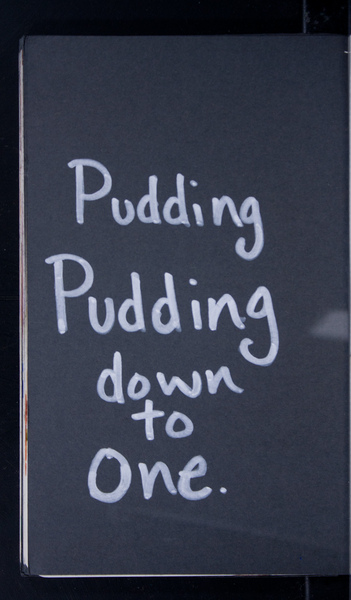 Pudding
Pudding
down
to
One.